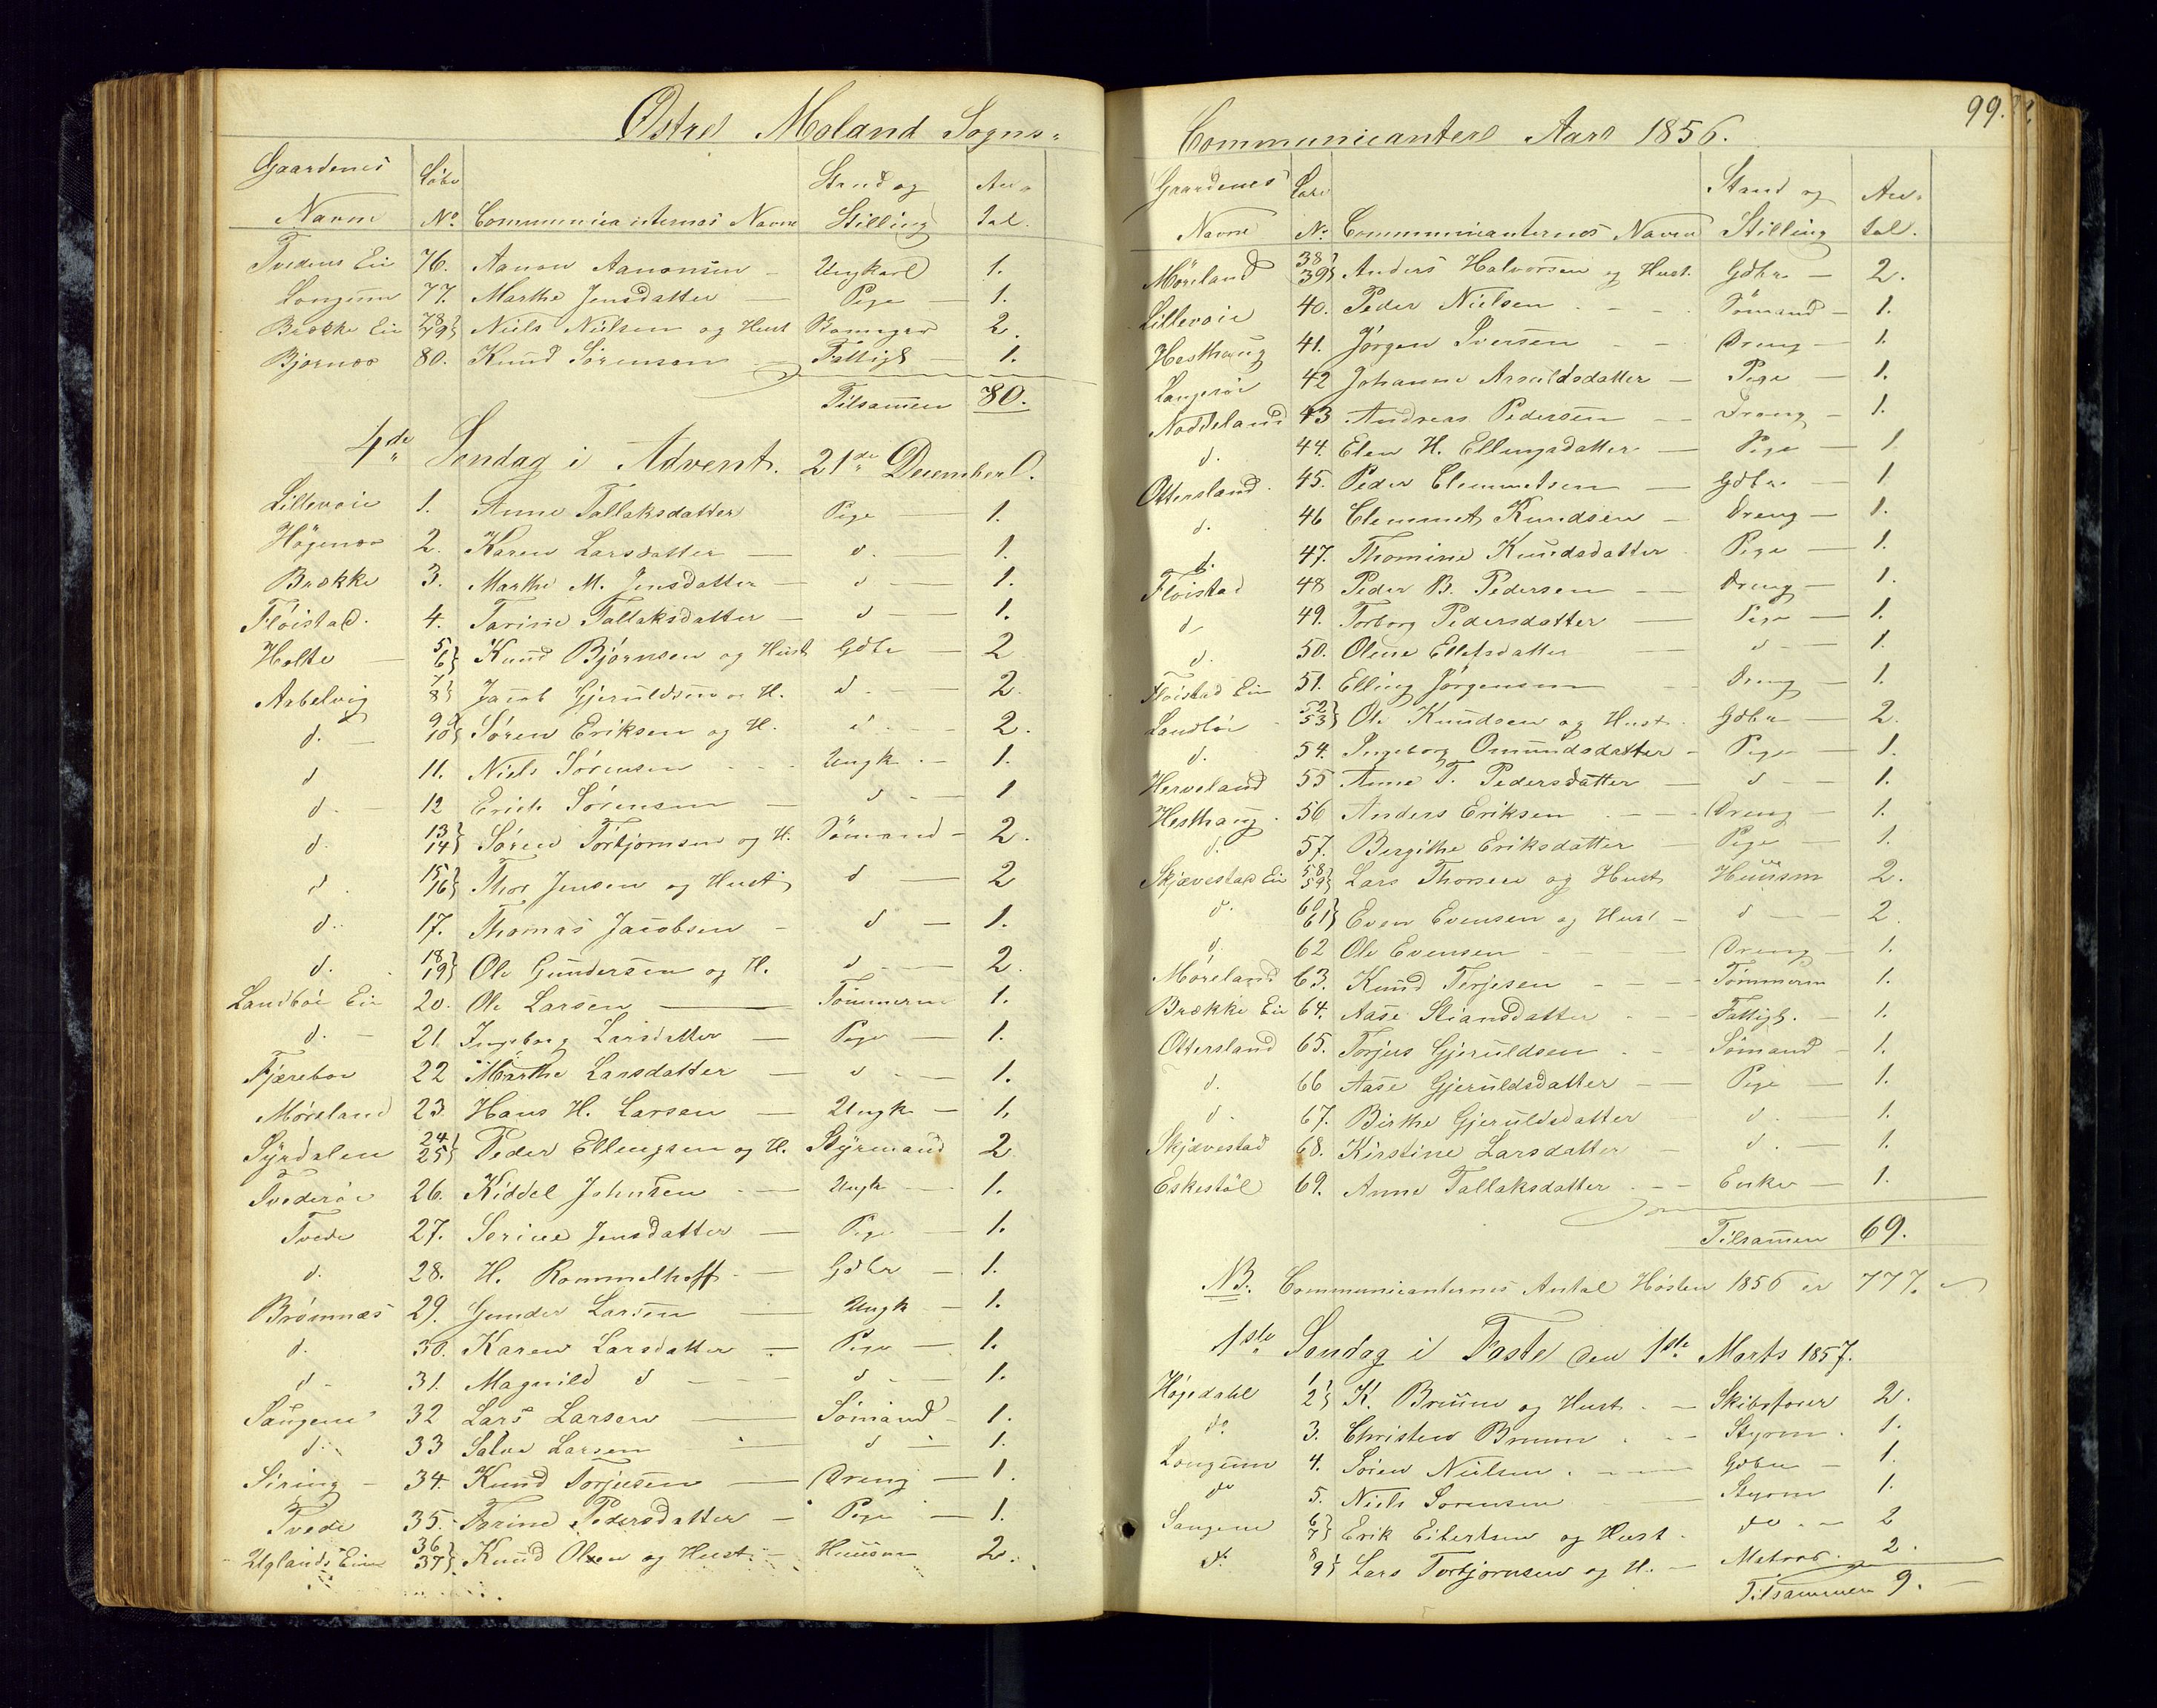 Østre Moland Sogns-
Gaardenes Løbe Stand og An-
Navne No. Communicanternes Navne Stilling tal.
Tvedens Eie 76. Aanon Aanonsen - Ungkarl 1.
Longum 77. Marthe Jensdatter - Pige - 1.
Brække Eie 78/79} Niels Nielsen og Hust 2.
Bjørnes 80. Knud Sørensen Fattigl - 1.
Tilsamen 80.
4de Søndag i Advent. 21de December.
Lillevoie 1. Anne Tallaksdatter Pige - 1.
Högenæs 2. Karen Larsdatter - d. - 1.
Brække 3. Marthe M. Jensdatter - d - 1.
Fløistad. 4. Tarine Tallaksdatter - d - 1.
Holte - 5/6} Knud Bjørnsen og Hust Gdbr - 2
Asbelvig 7/8} Jacob Gjeruldsen og H. d. - 2.
d. - 9/10} Søren Eriksen og H. d. - 2.
d 11. Niels Sørensen - Ungk. - 1.
d. - 12 Erich Sørensen - d - 1
d. 13/14} Søren Torbjørnsen og H. Sömand - 2.
d. 15/16} Thor Jensen og Hust d - 2
d. 17. Thomas Jacobsen - d - 1.
d. 18/19} Ole Gundersen og H. d - 2.
Landbøe Eie 20. Ole Larsen - Tömmerm 1.
d. - 21. Ingeborg Larsdatter - Pige - 1.
Fjæreboe 22 Marthe Larsdatter - d - 1.
Møreland 23. Hans H. Larsen - Ungk - 1.
Syrdalen 24/25} Peder Ellingsen og H. Styrmand 2
Tvederøe 26. Kiddel Johnsen - Ungk - 1.
Tvede 27. Serine Jensdatter - Pige - 1.
d. 28. H. Rommelhoff - Gdbr - 1.
Brømnæs 29. Gunder Larsen - Ungk - 1.
d. 30. Karen Larsdatter - Pige - 1.
d 31. Magnild d - d - 1.
Saugene 32 Lars Larsen - Sömand - 1.
d. 33 Salve Larsen - d - 1.
Siring - 34. Knud Torjusen - Dreng - 1.
Tvede 35. Torine Pedersdatter - Pige - 1.
Uglands Eie 36/37} Knud Olsen og Hust - Huusm 2.
99.
Communicanter Aar 1856.
Gaardenes Løbe Stand og An-
Navne No. Communicanternes Navne Stilling tal.
Möreland 38/39} Anders Halvorsen og Hust. Gdbr - 2.
Lillevoie 40. Peder Nielsen - Sömand - 1.
Hesthaug 41. Jörgen Iversen - Dreng - 1.
Langerøe 42 Johanne Arnuldsdatter - Pige - 1.
Noddeland 43 Andreas Pedersen - Dreng - 1.
d. 44. Elen H. Ellingsdatter - Pige - 1
Ottersland 45. Peder Clemmetsen - Gdbr - 1
d. 46 Clemmet Knudsen - Dreng - 1.
d. 47. Thomine Knudsdatter Pige - 1.
Fløistad 48 Peder B. Pedersen - Dreng - 1.
d. 49. Torborg Pedersdatter - Pige - 1.
d. 50. Olene Ellefsdatter - d - 1.
Fløistad Eie 51. Elling Jörgensen - Dreng - 1.
Landbøe 52/53} Ole Knudsen og Hust. Gdbr - 2.
d. 54. Ingeborg Omundsdatter - Pige - 1.
Herveland 55 Anne T. Pedersdatter - d - 1.
Hesthaug 56 Anders Eriksen - Dreng - 1.
d. 57. Bergithe Eriksdatter - Pige - 1.
Skjævestad Eie 58/59} Lars Thorsen og Hust Huusm 2.
d. 60/61} Even Evensen og Hust - d - 2.
d. 62 Ole Evensen - Dreng - 1.
Möreland 63. Knud Terjesen - Tömmerm 1.
Brække Eie 64. Aase Stiansdatter - Fattigl. - 1.
Ottersland 65. Torjus Gjeruldsen - Sömand - 1.
d. 66 Aase Gjeruldsdatter - Pige - 1.
d. 67. Birthe Gjeruldsdatter d. - 1.
Skjævestad 68. Kirstine Larsdatter - d. - 1.
Eskestøl 69. Anne Tallaksdatter - Enke - 1.
Tilsamen 69.
NB. Communicanternes Antal Høsten 1856 er 777.
1ste Søndag i Faste den 1ste Marts 1857.
Högedahl 1/2} K. Bruun og Hust. - Skibsförer 2.
do 3. Christen Bruun - Styrm. 1.
Longum 4. Sören Nielsen - Gdbr - 1.
do 5. Niels Sorensen - Styrm 1.
Saugene 6/7} Erik Eilertsen og Hust - do - 2
do 8/9} Lars Torbjørnsen og H. - Matros. 2.
Tilsammen 9.